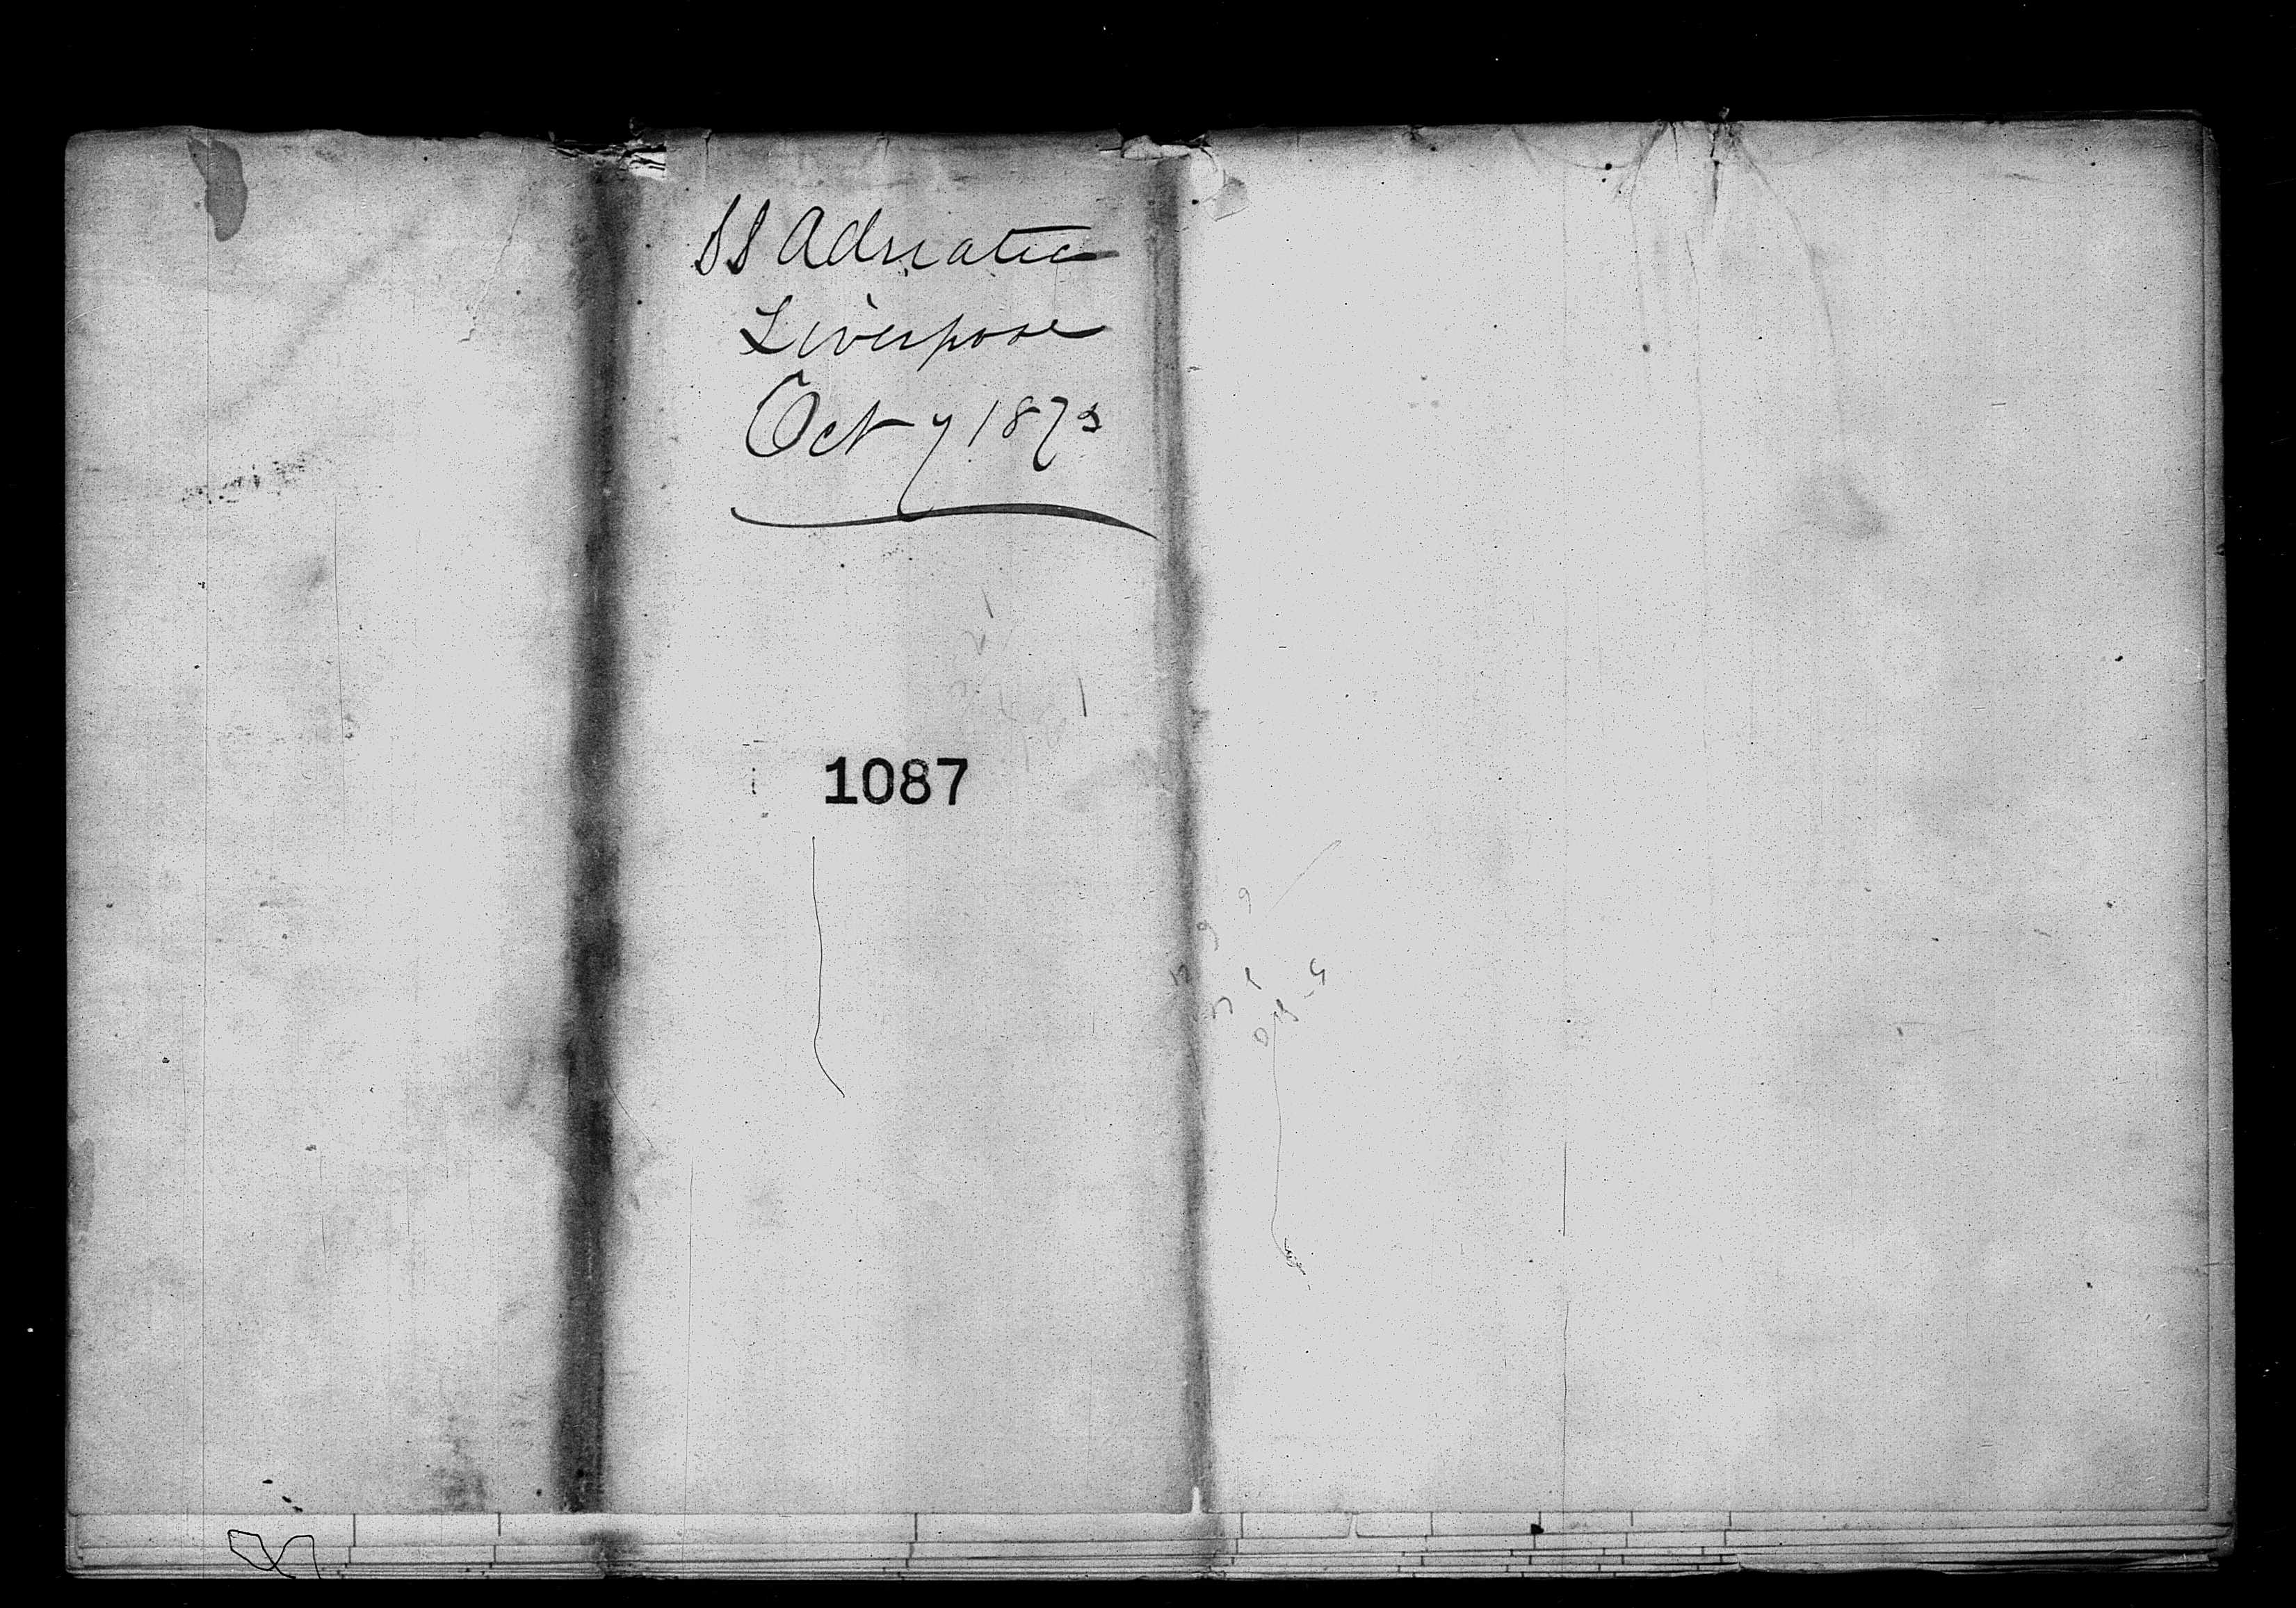 SS Adriatic
Liverpool
Oct 7 1873
1087